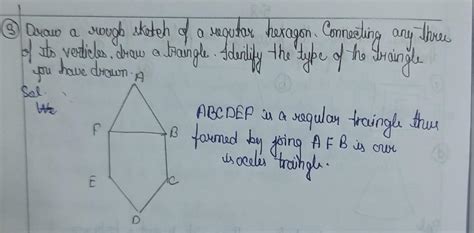 ③ Draw a rough sketch of a regular hexagon. Connecting any three
of its verticles, draw a traingle. Identify the type of the traingle
you have drawn.
Sol.
We
A
F
B
E
C
D
ABCDEF is a regular traingle thus
formed by joing AFB is our
isoceles traingle.